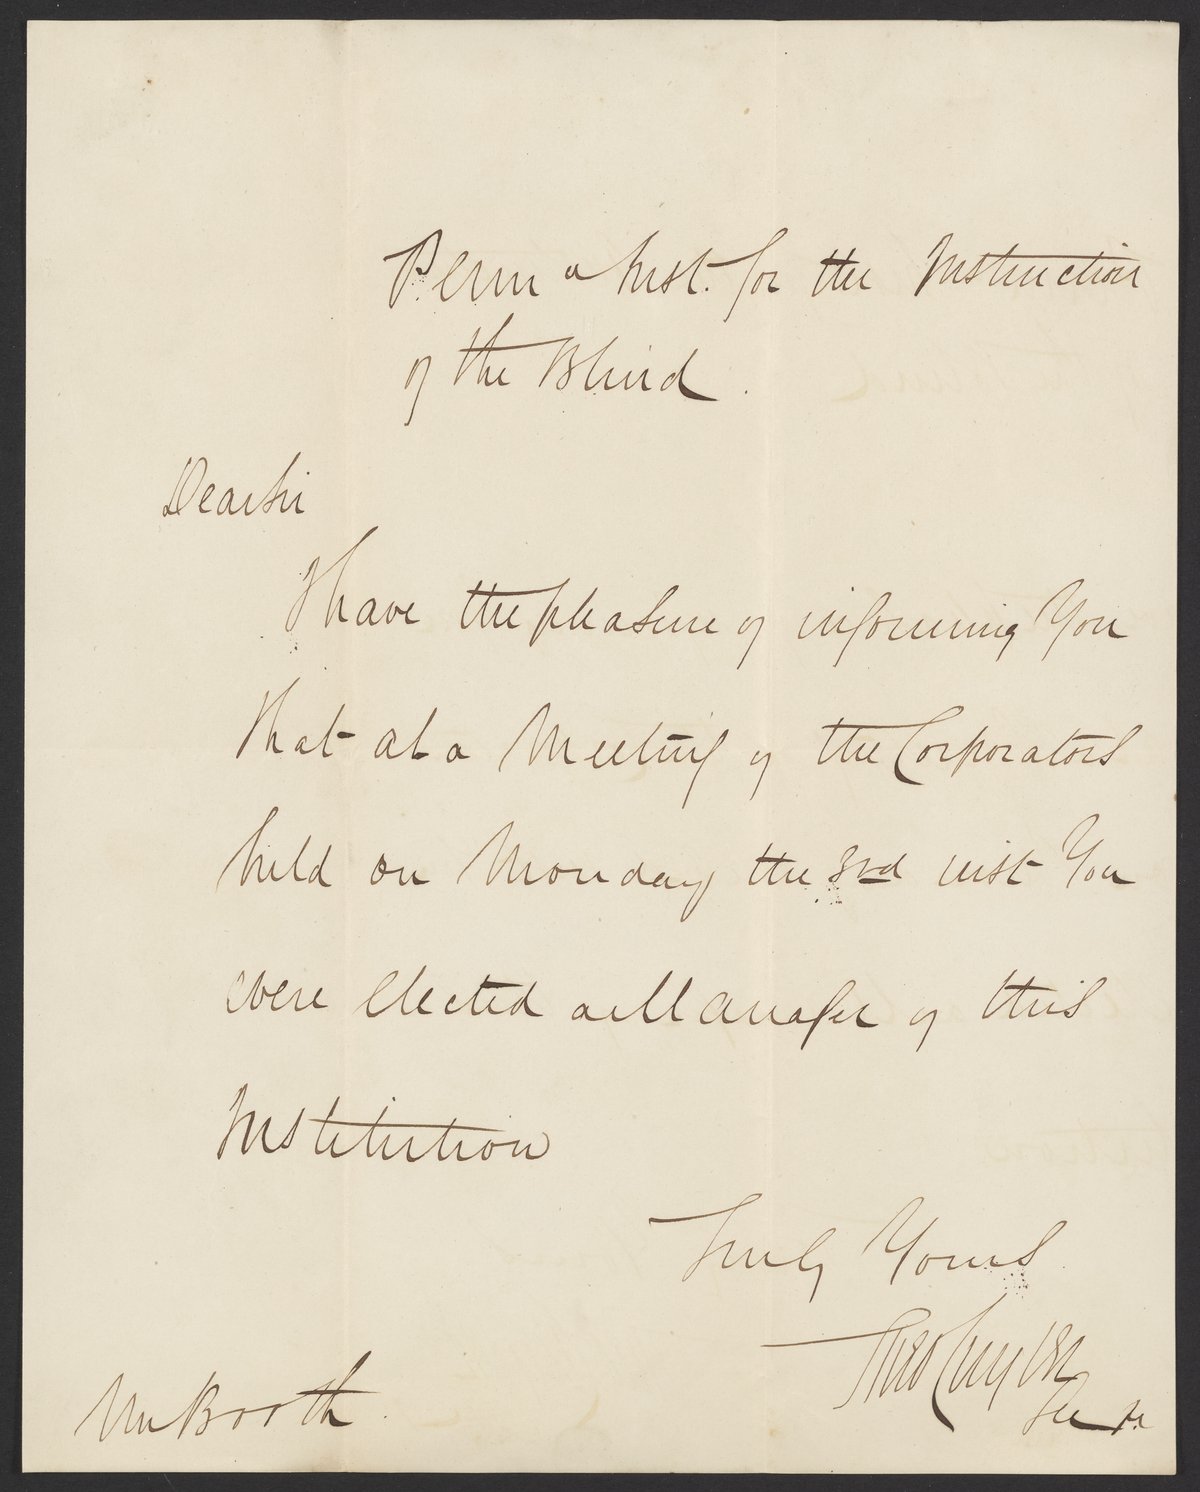 Penna Inst. for the Instruction
of the Blind.
Dear Sir
I have the pleasure of informing You
that at a Meeting of the Corporators
held on Monday the 3rd inst You
were elected a Manager of this
Institution
Truly Yours
Theo Cuyler
Secy
Mr Booth.